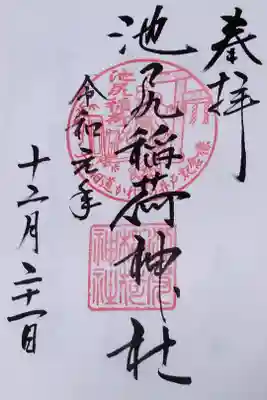 奉拝
池尻稲荷神社
令和元年
十二月二十一日